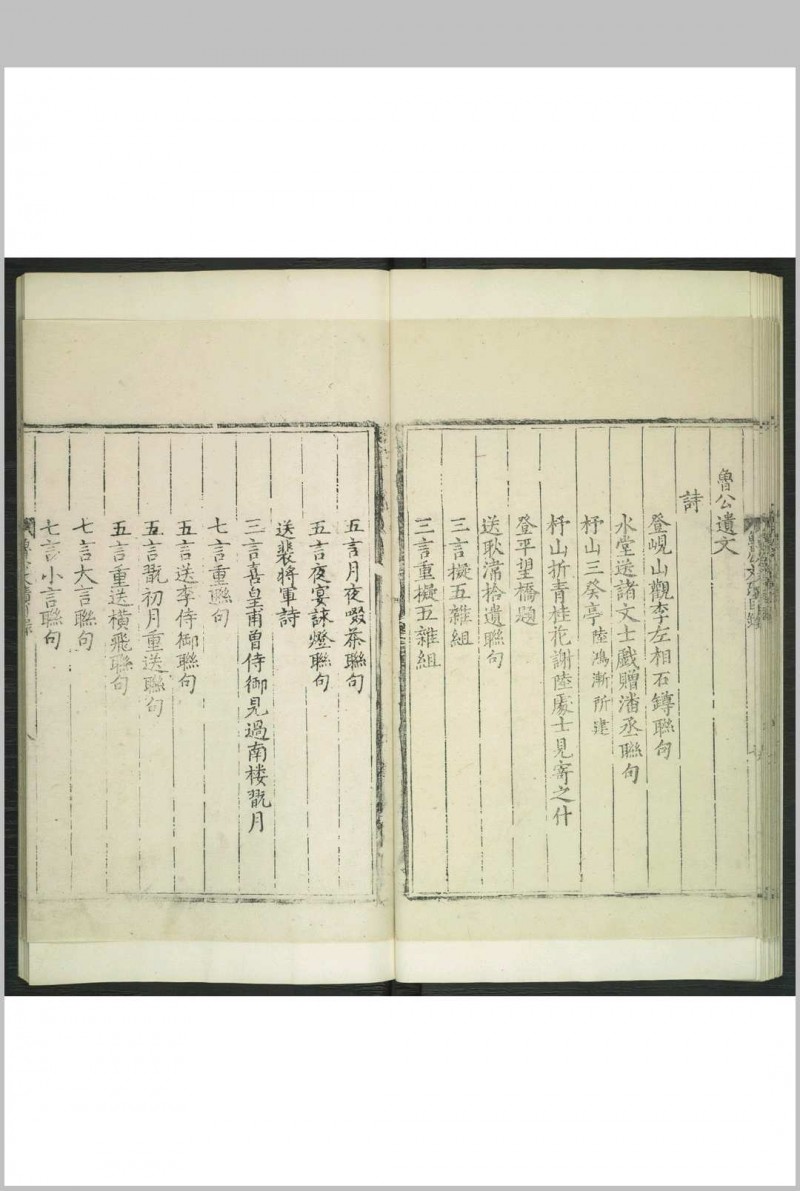 魯公遺文
詩
登峴山觀李左相石罇聯句
水堂送諸文士戲贈潘丞聯句
杼山三癸亭陸鴻漸所建
杼山折青桂花謝陸處士見寄之什
登平望橋題
送耿湋拾遺聯句
三言擬五雜組
三言重擬五雜組
五言月夜啜茶聯句
五言夜宴詠燈聯句
送裴將軍詩
三言喜皇甫曽侍御見過南楼翫月
七言重聯句
五言送李侍御聯句
五言翫初月重送聯句
五言重送橫飛聯句
七言大言聯句
七言小言聯句